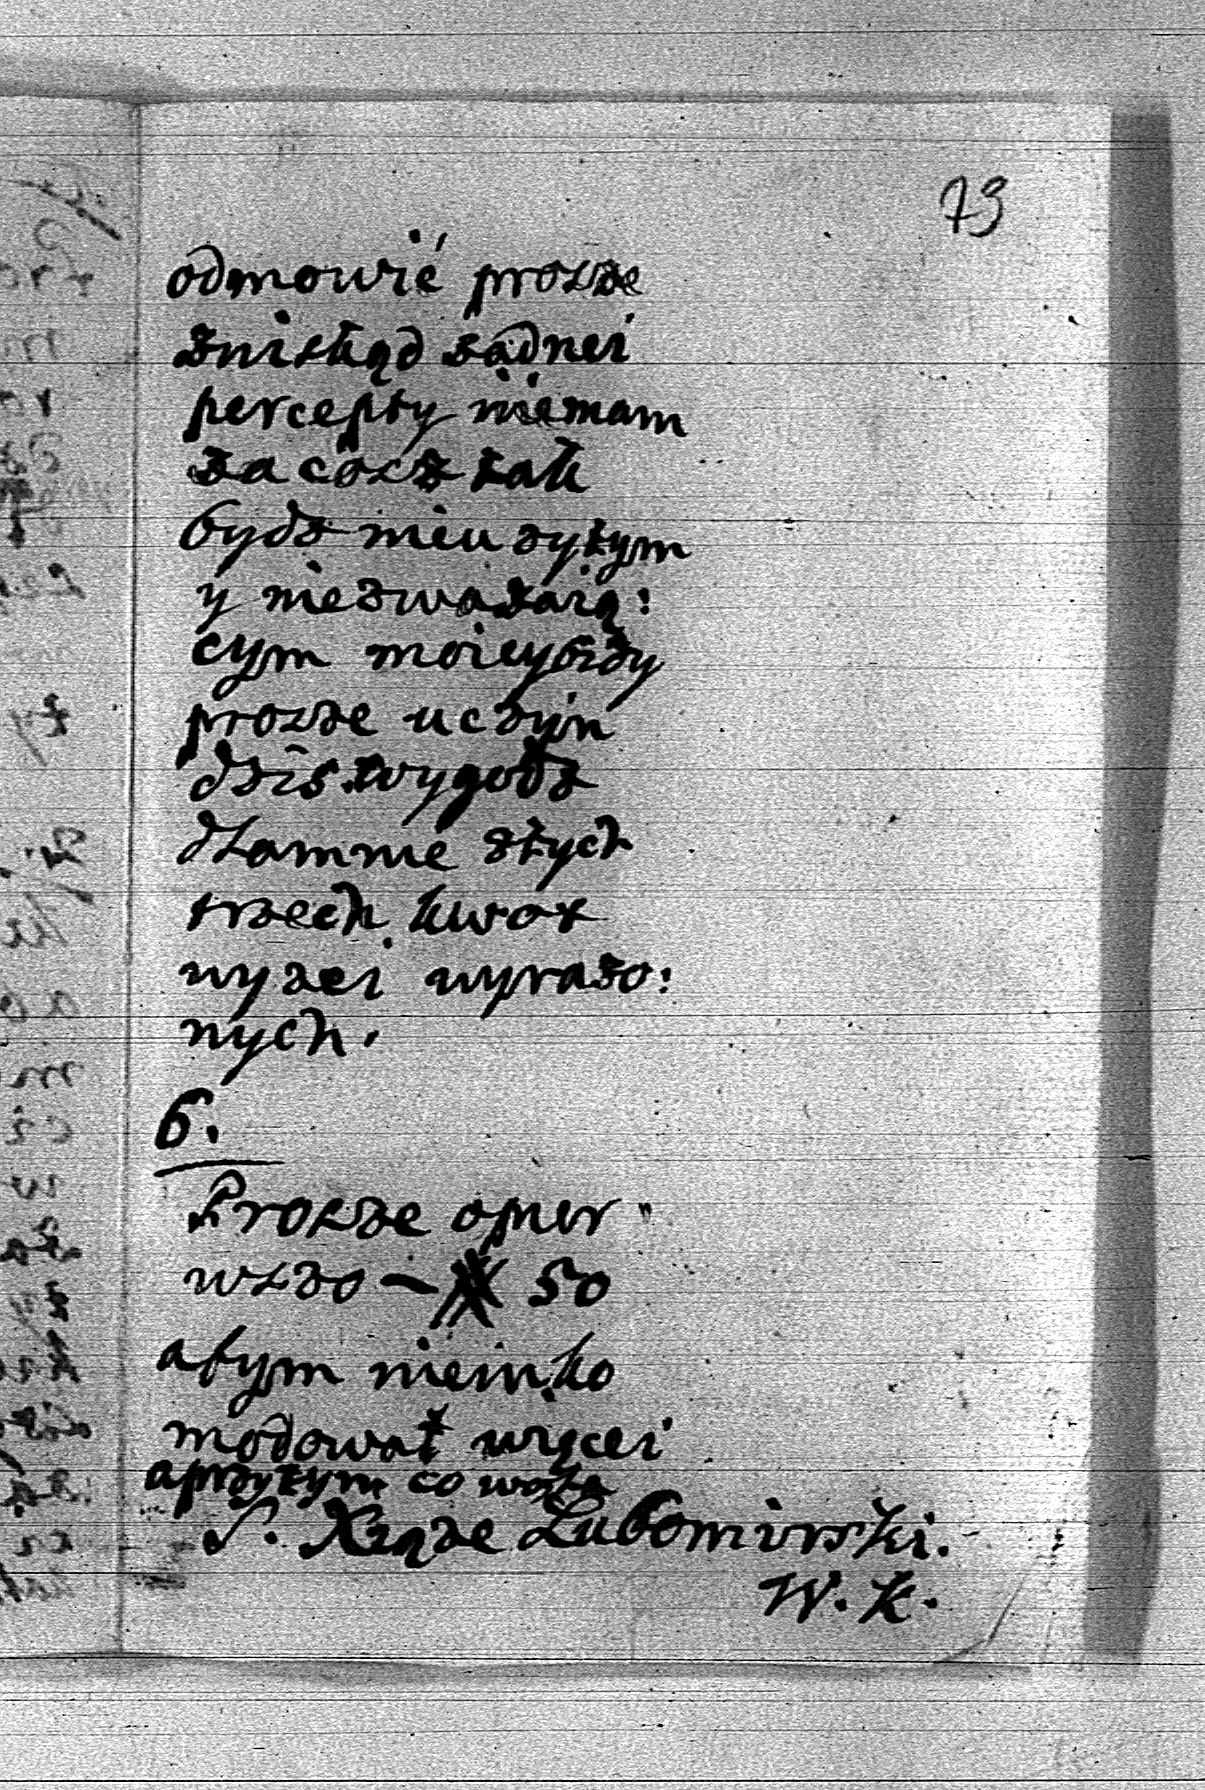 73
odmowić prosze
znikąd żadnei
percepty niemam
za cosz tak
bydz nieużytym
y niezważaią:
cym moiey bidy
prosze uczyń
dziś wygodz
dlamnie ztych
trzech kwot
wyżei wyrażo:
nych.
6.
Prosze o pier "
wszo — # 50
abym nieinko
modował więcei
aprzytym co
S. Xsąże Lubomirski.
W. K.